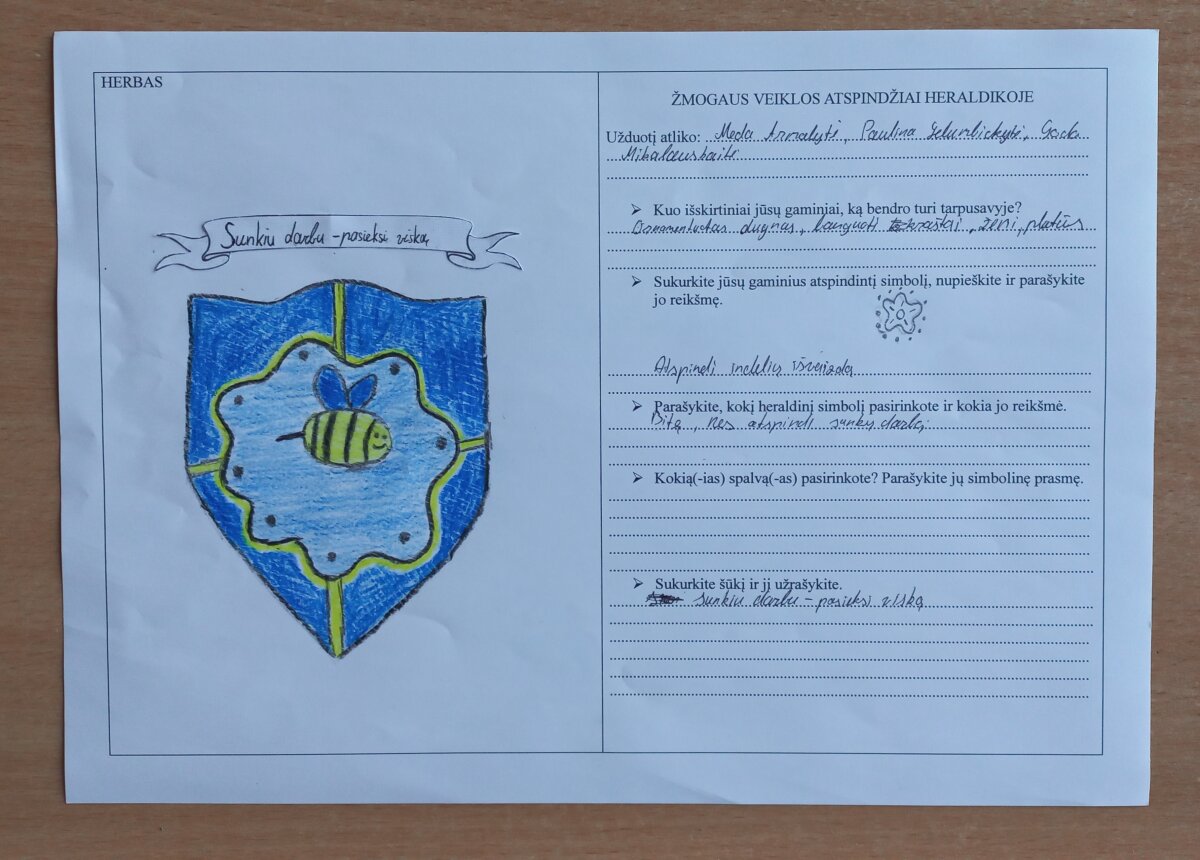 HERBAS
Sunkiu darbu - pasieksi viską
ŽMOGAUS VEIKLOS ATSPINDŽIAI HERALDIKOJE
Užduotį atliko: Meda Paulina
➢ Kuo išskirtiniai jūsų gaminiai, ką bendro turi tarpusavyje?
dugnas, banguoti kraštai, žemi, platūs
➢ Sukurkite jūsų gaminius atspindintį simbolį, nupieškite ir parašykite
jo reikšmę.
Atspindi indelių išvaizdą
➢ Parašykite, kokį heraldinį simbolį pasirinkote ir kokia jo reikšmė.
Bitę, nes atspindi sunkų darbą.
➢ Kokią(-ias) spalvą(-as) pasirinkote? Parašykite jų simbolinę prasmę.
➢ Sukurkite šūkį ir jį užrašykite.
sunkiu darbu - pasieksi viską